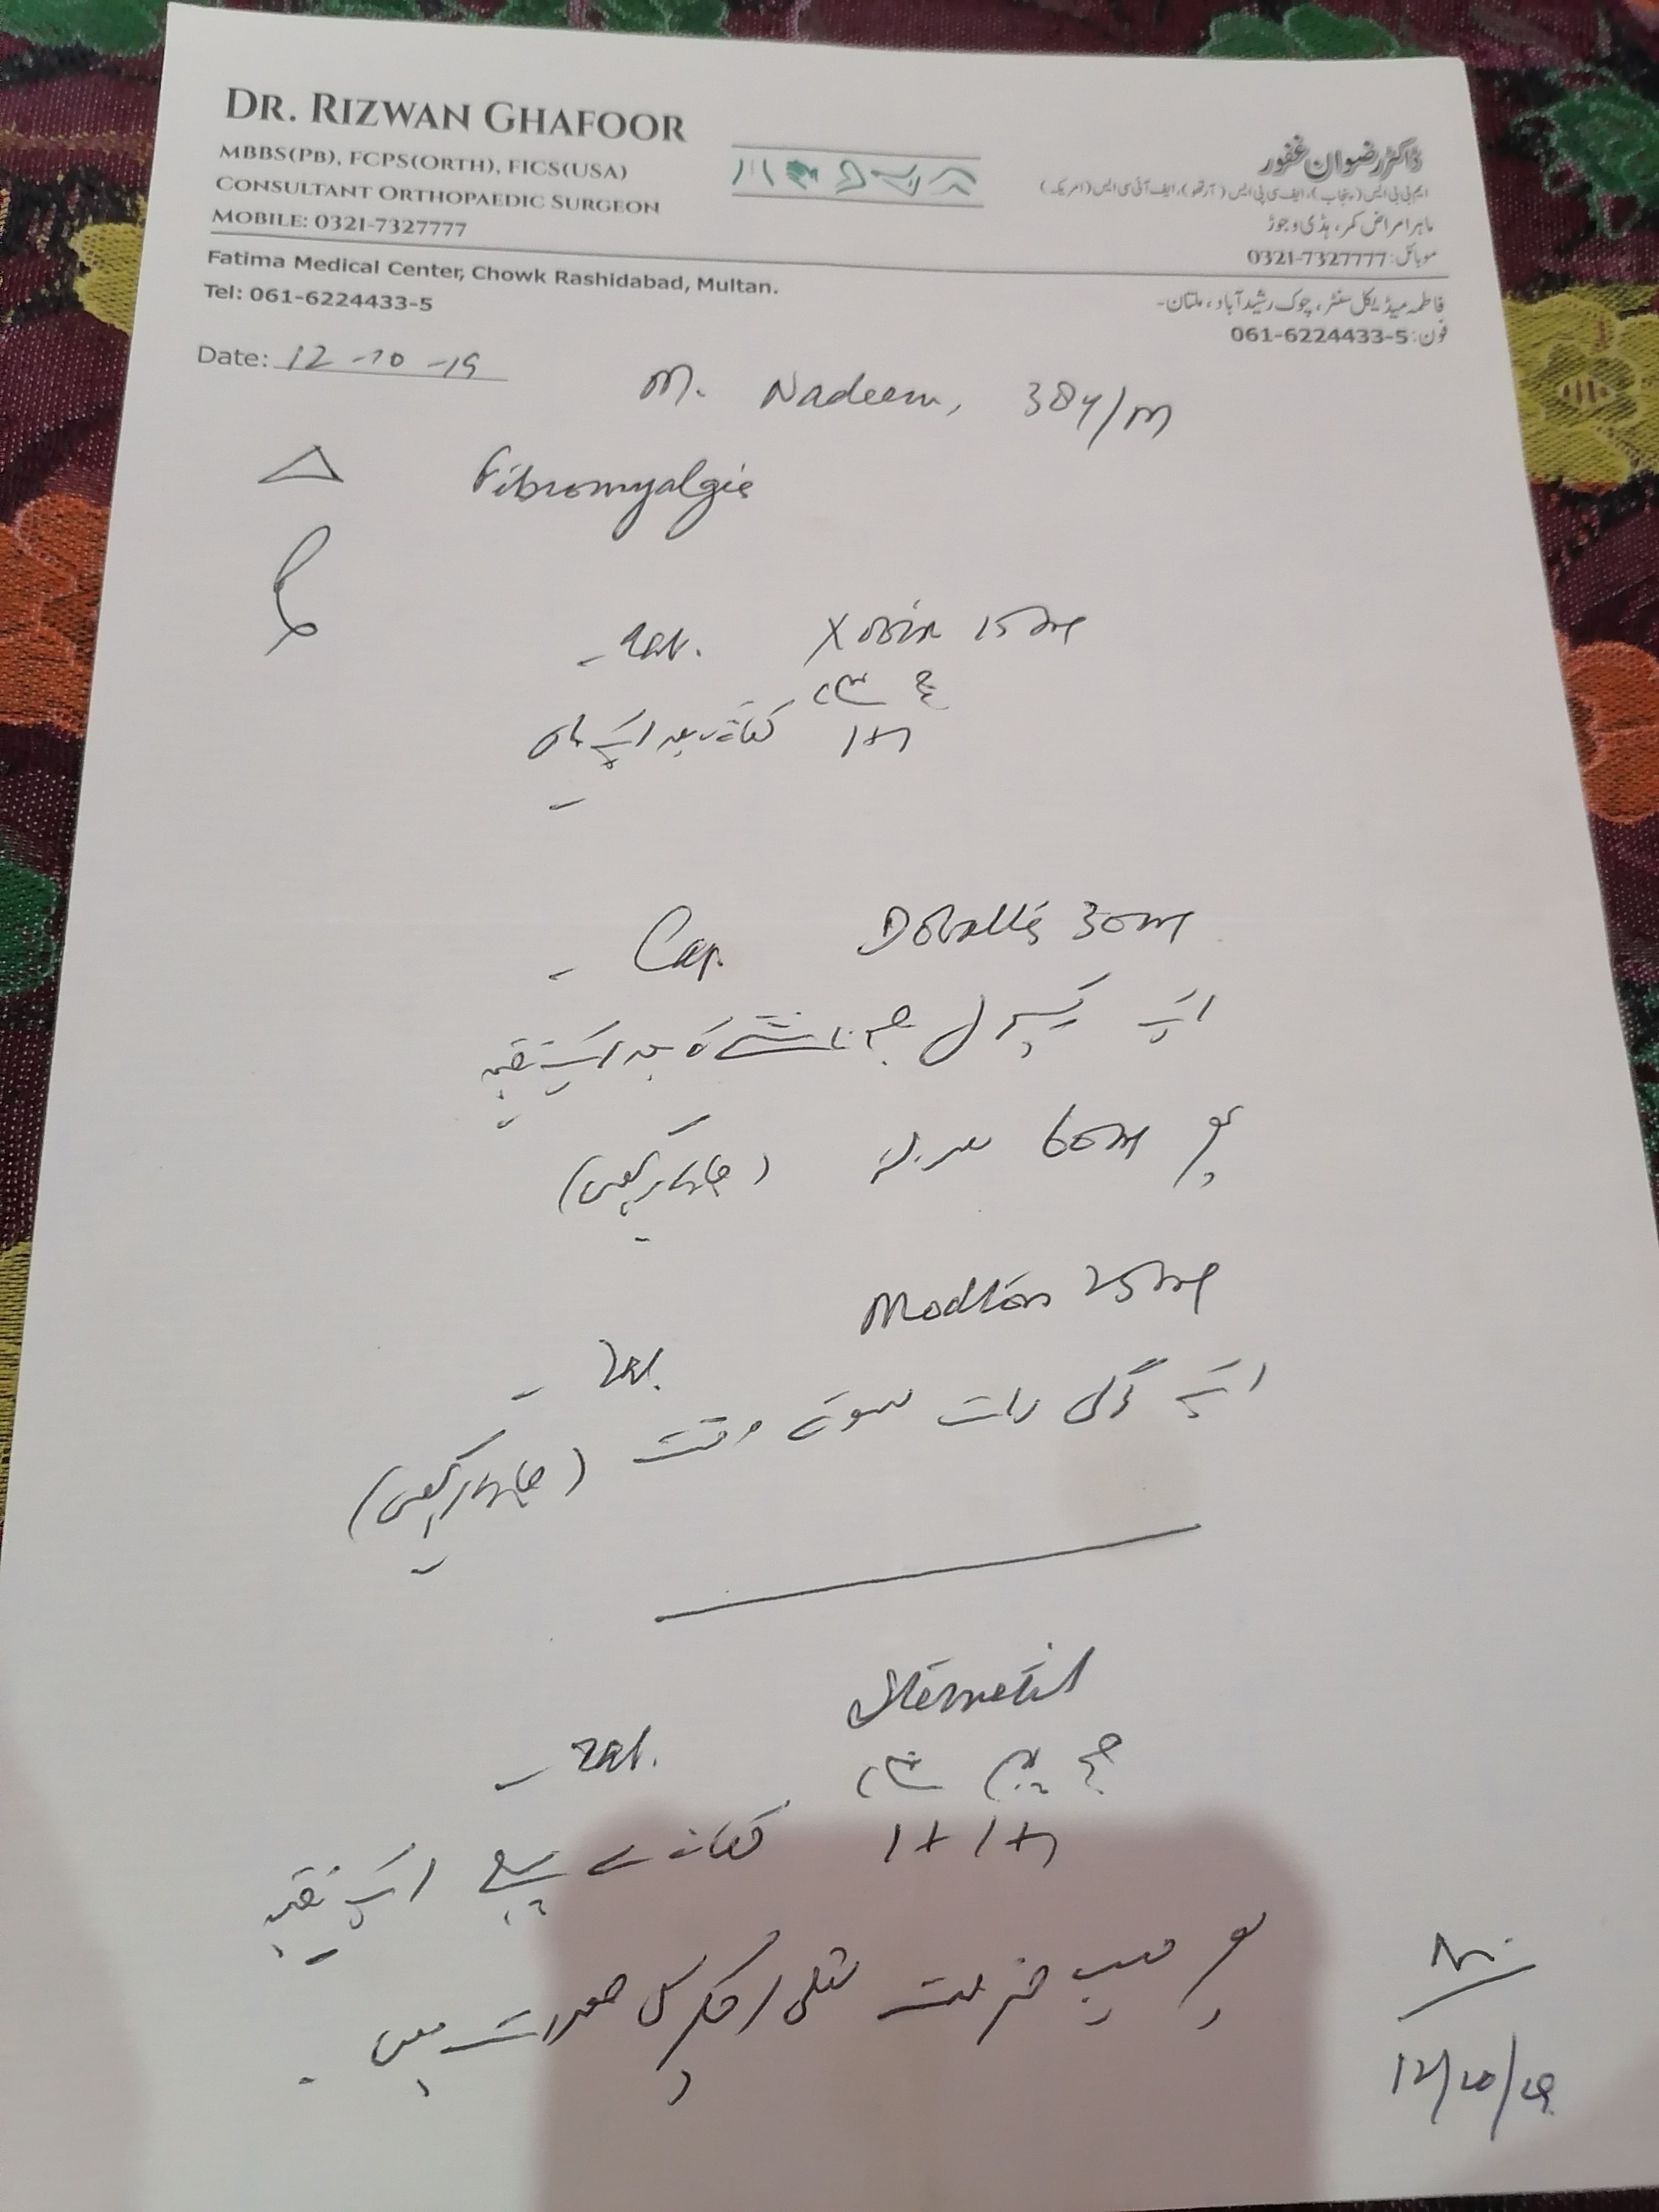 DR. RIZWAN GHAFOOR
MBBS(PB), FCPS(ORTH), FICS(USA)
CONSULTANT ORTHOPAEDIC SURGEON
MOBILE: 0321-7327777
ڈاکٹر رضوان غفور
ایم بی بی ایس (پنجاب)، ایف سی پی ایس (آرتھو)، ایف آئی سی ایس (امریکہ)
ماہر امراض کمر، ہڈی و جوڑ
موبائل: 0321-7327777
Fatima Medical Center, Chowk Rashidabad, Multan.
Tel: 061-6224433-5
فاطمہ میڈیکل سنٹر، چوک رشید آباد، ملتان۔
فون: 061-6224433-5
Date: 12-10-19
M. Nadeem, 38y/m
Fibromyalgia
- Tab. Xobix 15mg
صبح شام
1+1 کھانے بعد ایک ماہ
- Cap. 30mg
ایک کیپسول صبح ناشتے کے بعد ایک ہفتہ
پھر 60mg (جاری رکھیں)
- Tab. 25mg
ایک گولی رات سوتے وقت (جاری رکھیں)
- Tab. Stemetil
صبح دوپہر شام
1+1+1 کھانے سے پہلے ایک ہفتہ
پھر حسب ضرورت متلی / چکر کی صورت میں
12/10/19